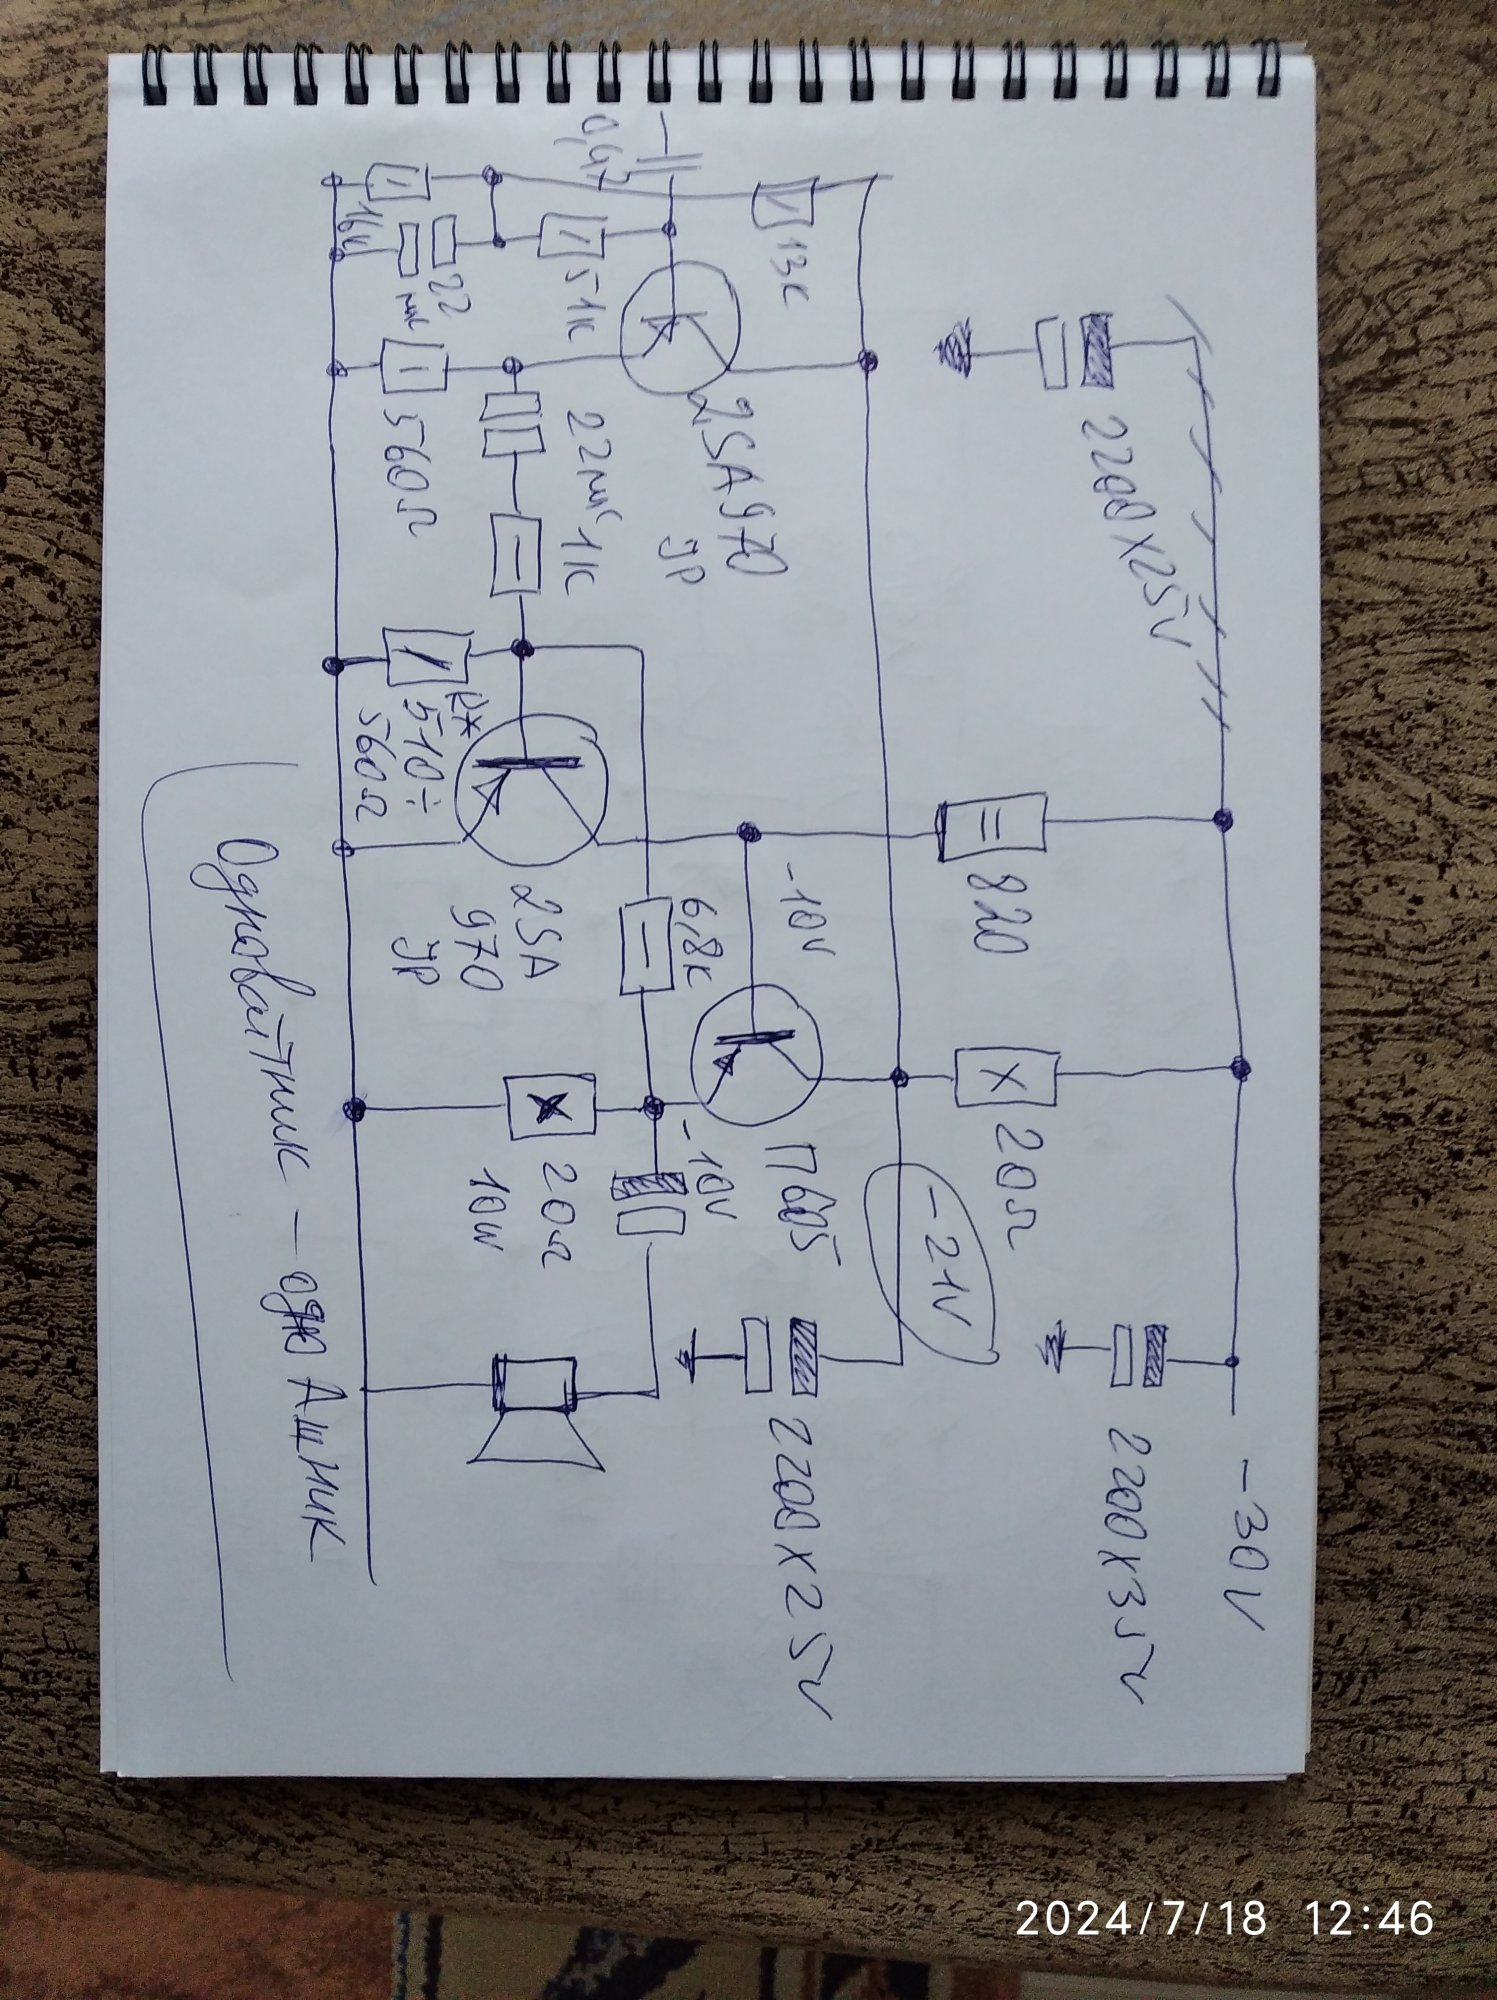 -30V
2200x25V
2200x35V
820
20Ω
-21V
13к
0,47
2SA970
JP
-10V
П605
2200x25V
51к
22мк
1к
6,8к
-10V
16к
22
мк
560Ω
R*
510÷
560Ω
2SA
970
JP
20Ω
10W
Одноватник – одно Ащник
2024/7/18 12:46